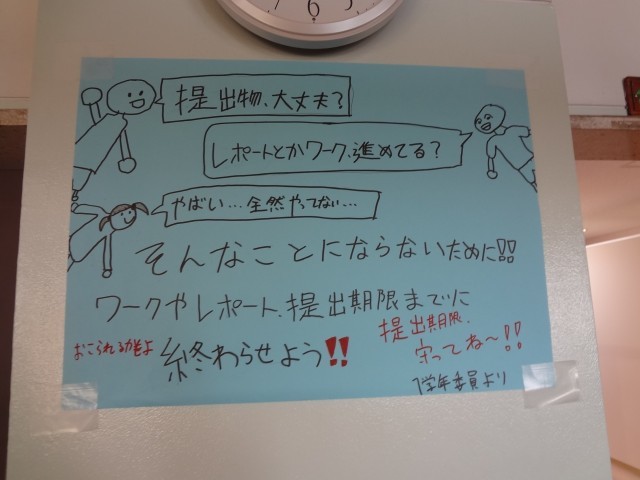 6
提出物、大丈夫?
レポートとかワーク、進めてる?
やばい…全然やってない…
そんなことにならないために!!
ワークやレポート、提出期限までに
おこられるかもよ
終わらせよう!!
提出期限、
守ってね〜!!
学年委員より